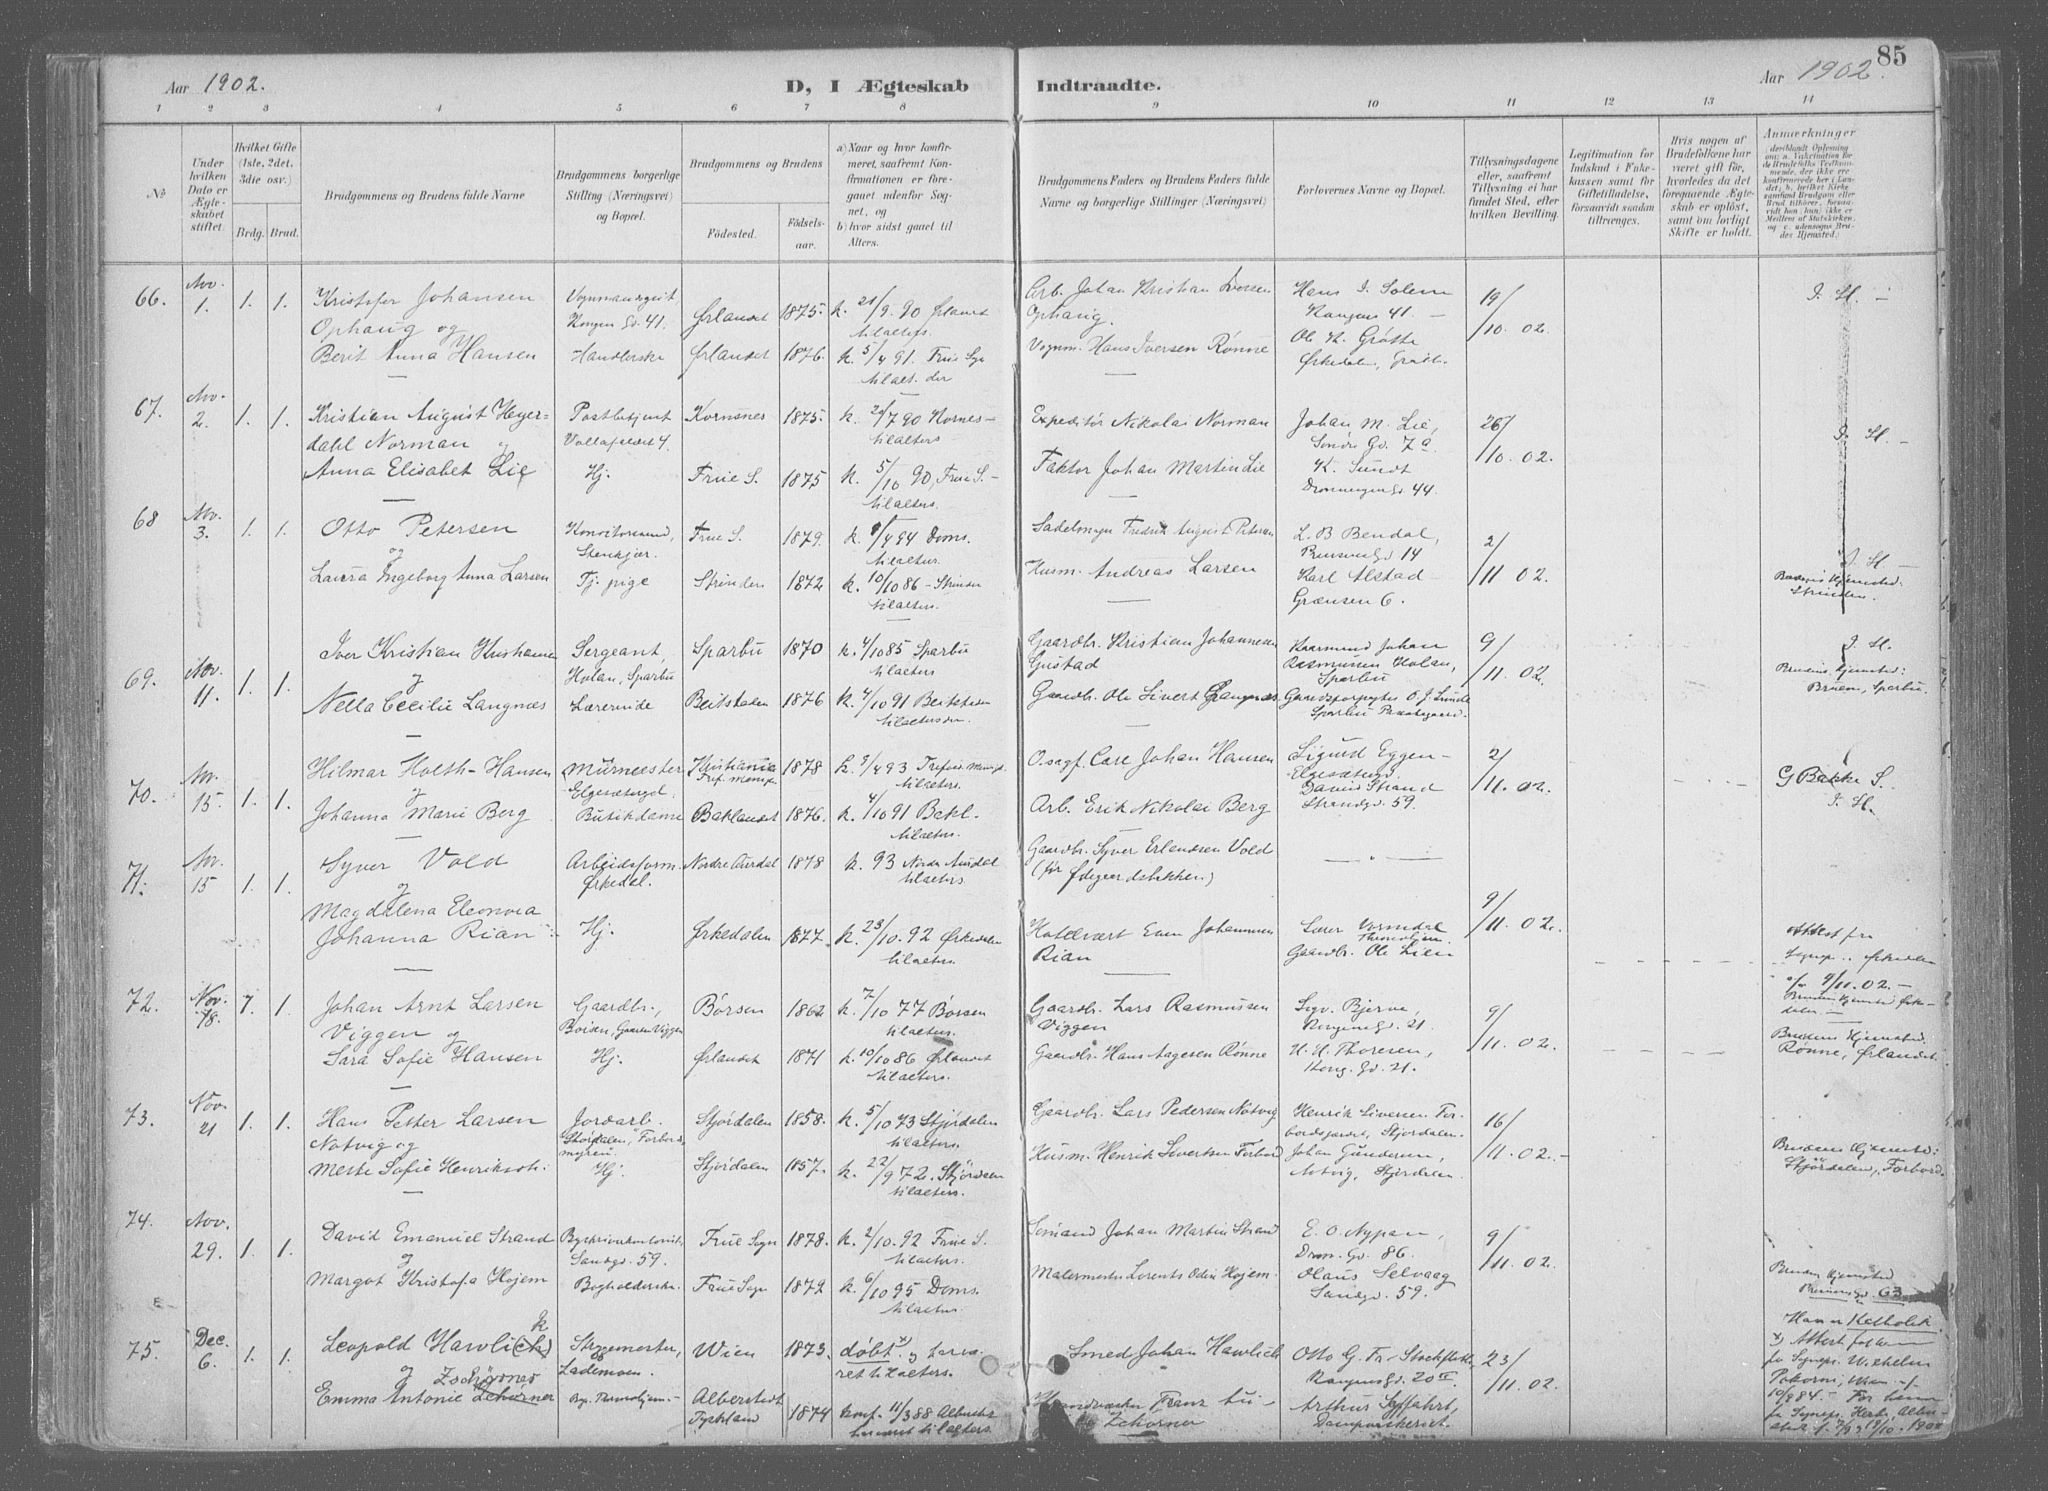 85
Aar 1902.
D, I Ægteskab
Indtraadte.
Aar 1902.
1 2 3 4 5 6 7 8 9 10 11 12 13 14
No
Under hvilken Dato er Ægteskabet stiftet.
Hvilket Gifte (1ste, 2det, 3die osv.)
Brdg. Brud.
Brudgommens og Brudens fulde Navne
Brudgommens borgerlige Stilling (Næringsvei) og Bopæl.
Brudgommens og Brudens
Fødested.
Fødselsaar.
a) Naar og hvor konfirmeret, saafremt Konfirmationen er foregaaet udenfor Sognet, og
b) hvor sidst gaaet til Alters.
Brudgommens Faders og Brudens Faders fulde Navne og borgerlige Stillinger (Næringsvei)
Forlovernes Navne og Bopæl.
Tillysningsdagene eller, saafremt Tillysning ei har fundet Sted, efter hvilken Bevilling.
Legitimation for Indskud i Enkekassen samt for Giftetilladelse, forsaavidt saadan tiltrænges.
Hvis nogen af Brudefolkene har været gift før, hvorledes da det foregaaende Ægteskab er opløst, samt om lovligt Skifte er holdt.
Anmærkninger
66. Nov. 1. 1. 1. Kristofer Johansen Ophaug og
Vognmandsgut, Kongens Gd. 41. Ørlandet 1875. k. 21/9. 90 Ørlandet til alters.
Arb. Johan Kristian Iversen Ophaug.
Hans J. Solem Kongens 41. — 19/10. 02. I. H. —
Berit Anna Hansen Handlerske Ørlandet 1876. k. 5/4 91. Frue Sgn til alt. der
Vognm. Hans Iversen Rønne
Ol. K. Grøtte Ørkedalen,
67. Nov. 2. 1. 1. Kristian August Heyerdahl Norman og
Postbetjent Vollafaldet 4. Kornsnes 1875. k. 20/7 90 Kornes — til alters
Expeditør Nikolai Norman
Johan M. Lie, Søndre Gd. 7a 26/10. 02. I. H. —
Anna Elisabet Lie Hj. Frue S. 1875 k. 5/10 90, Frue S. — til alters.
Faktor Johan Martin Lie
K. Sundt Dronningensgd. 44.
68 Nov. 3. 1. 1. Otto Petersen og
Stenkjer. Frue S. 1879. k. 8/4 94 Doms. til alters.
Sadelmager Fredrik August Petersen
L. B. Bendal, Prinsens Gd 14 2/11. 02. I. H. —
Laura Ingeborg Anna Larsen Tj. pige Strinden 1872 k. 10/10 86 — Strinden til alters.
Husm. Andreas Larsen
Karl Alstad Grænsen 6.
Brudens Hjemsted: Strinden.
69. Nov. 11. 1. 1. Iver Kristian Kristiansen og
Sergeant, Holan, Sparbu Sparbu 1870 k. 4/10 85 Sparbu til alters
Gaardbr. Kristian Johannesen Gustad
Johan Rasmussen Holan, Sparbu 9/11. 02. I. H.
Nella Cecilie Langnæs Lærerinde Beitstaden 1876 k. 4/10 91 Beitstaden til alters
Gaardbr. Ole Sivert Langnæs
Gaardsforpagter O. J. Sunde Sparbu
Brudens Hjemsted: Sparbu.
70. Nov. 15. 1. 1. Hilmar Holth-Hansen og
Murmester Elgesætergd. Kristiania 1878 k. 9/4 93 til alters.
Johan Hansen
Sigurd Eggen — Elgesætergd. 2/11. 02. Bakke S. I. H.
Johanna Marie Berg Butikdame Baklandet 1876. k. 4/10 91 Bakl. til alters.
Arb. Erik Nikolai Berg
David Strand Strandgd. 59.
71. Nov. 15 1. 1. Syver Vold og
Arbeidsform. Ørkedal. Nordre Aurdal 1878 k. 93 Nordre Aurdal til alters.
Gaardbr. Syver Erlandsen Vold
Magdalena Eleonora Johanna Rian Hj. Ørkedalen 1877. k. 23/10. 92 Ørkedalen til alters.
Hotelvært Even Johannesen Rian
Lærer Gaardbr. Ole Lien 9/11. 02.
Attest fra Sognepr. Ørkedalen 9/11. 02. —
Brudens Hjemsted Ørkedalen. —
72. Nov. 18. 1. 1. Johan Arnt Larsen Viggen og
Gaardbr., Børsen, Gaarden Viggen Børsen 1862 k. 7/10 77 Børsen til alters.
Gaardbr. Lars Rasmussen Viggen
Sigv. Bjerve, Kongens Gd. 21. 9/11. 02.
Sara Sofie Hansen Hj. Ørlandet 1871 k. 10/10 86 Ørlandet til alters.
Gaardbr. Hans Aagesen Rønne
H. H. Thoresen, Kong. Gd. 21.
Brudens Hjemsted: Rønne, Ørlandet.
73. Nov. 21 1. 1. Hans Petter Larsen Notvig og
Jordarb. Stjørdalen, Forbordsmyren. Stjørdalen 1858. k. 5/10 73 Stjørdalen til alters.
Gaardbr. Lars Pedersen Notvig
Henrik Siversen Forbordsjardet, Stjørdalen. 16/11. 02. —
Mette Sofie Henriksdt. Hj. Stjørdalen 1857. k. 22/9 72. Stjørdalen til alters.
Husm. Henrik Sivertsen Forbord
Johan Gundersen, Notvig, Stjørdalen.
Brudens Hjemsted: Stjørdalen, Forbord.
74. Nov. 29. 1. 1. David Emanuel Strand og
Sandgd. 59. Frue Sogn 1878. k. 2/10. 92 Frue S. til alters.
Sømand Johan Martin Strand
E. O. Nypan, Dronn. Gd. 86. 9/11. 02.
Margot Kristofa Hojem Bogholderske Frue Sogn 1879 k. 6/10 95 Doms. til alters.
Malermester Lorents Odin Hojem
Olaus Selvaag Sandgd. 59.
Brudens Hjemsted Prinsensgd. 63
75. Dec. 6. 1. 1. Leopold Hawlick og
Lademoen. Wien 1873. døbt
Smed Johan Hawlick
Otto G. Kongens Gd. 20 II. 23/11. 02.
Emma Antonie Zschörner Alberstedt Tyskland 1874 konf. 11/3 88
Franz Zchörner
Arthur Seyffahrt,
Han er Katholik.
x) Attest fra Wilhelm Pokorni, Wien 10/9 84 —